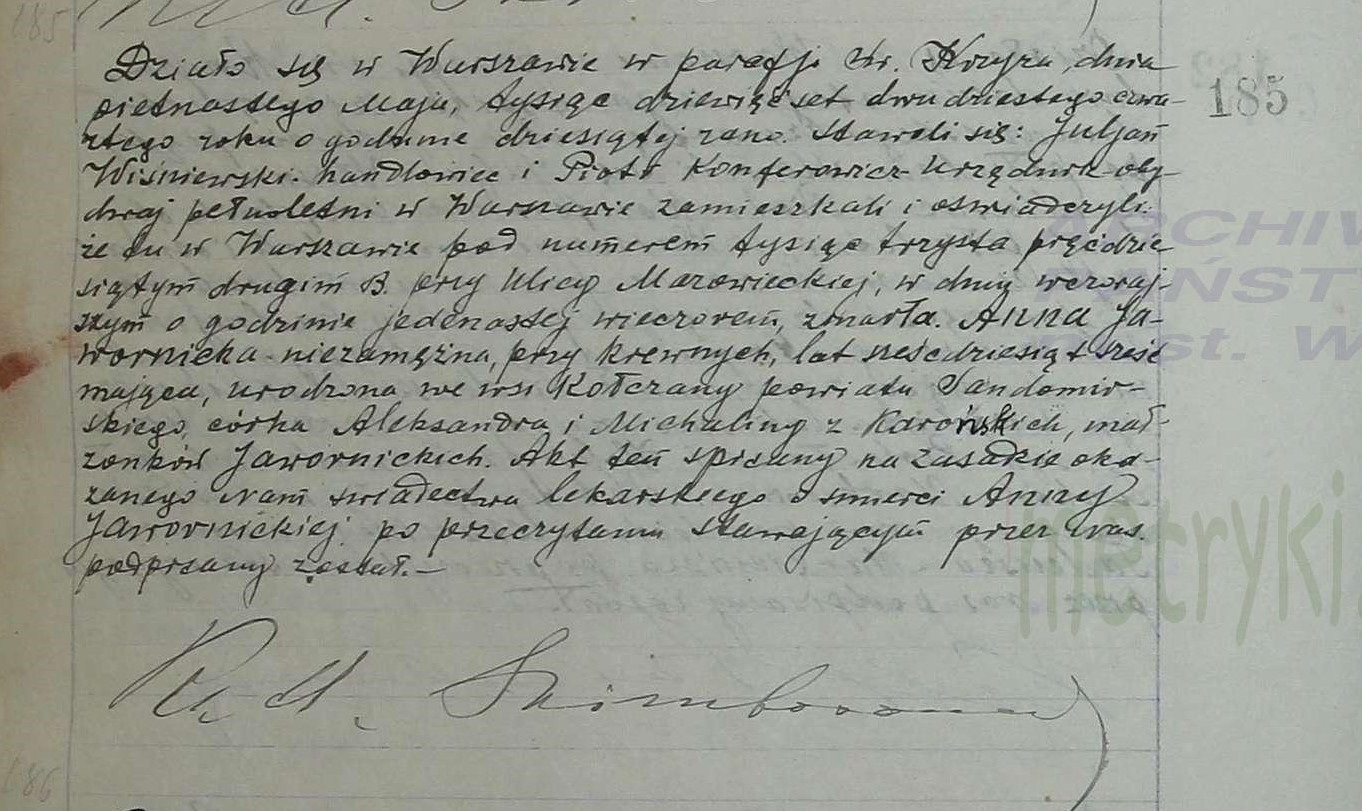 185
Działo się w Warszawie w parafji Św. Krzyża, dnia
piętnastego Maja, tysiąc dziewięćset dwudziestego czwa-
rtego roku o godzinie dziesiątej rano. Stawili się: Juljan
Wiśniewski-handlowiec i Piotr Konferowicz-urzędnik oby-
dwaj pełnoletni w Warszawie zamieszkali i oświadczyli:
że tu w Warszawie pod numerem tysiąc trzysta pięćdzie
siątym drugim B. przy Ulicy Mazowieckiej, w dniu wczoraj-
szym o godzinie jedenastej wieczorem, zmarła. Anna Ja-
wornicka-niezamężna, przy krewnych, lat sześćdziesiąt sześć
mająca, urodzona we wsi Kołczany powiatu Sandomir-
skiego, córka Aleksandra i Michaliny z Karońskich, mał-
żonków Jawornickich. Akt ten spisany na zasadzie oka-
zanego Nam świadectwa lekarskiego o śmierci Anny
Jawornickiej. po przeczytaniu stawającym przez Nas.
podpisany został.-
185
186
ARCHIW
PAŃST
m.st. W
metryki